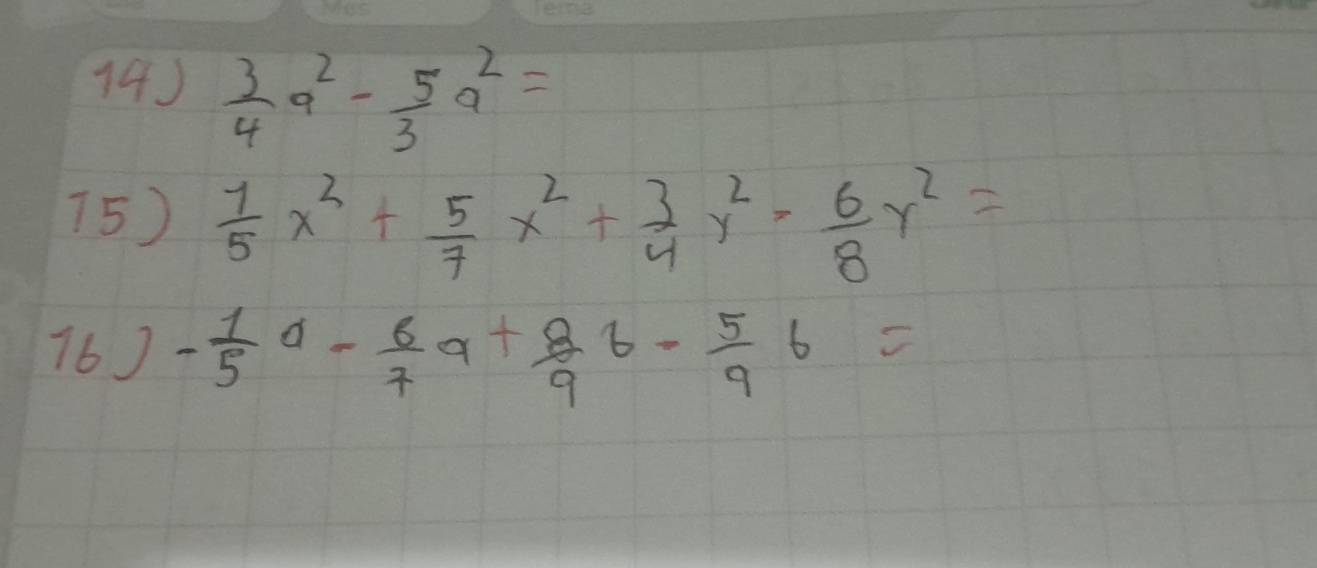 Mes Tema
14) 3/4 a² - 5/3 a² =
15) 1/5 x² + 5/7 x² + 3/4 y² - 6/8 y² =
16) - 1/5 a - 6/7 a + 8/9 b - 5/9 b =